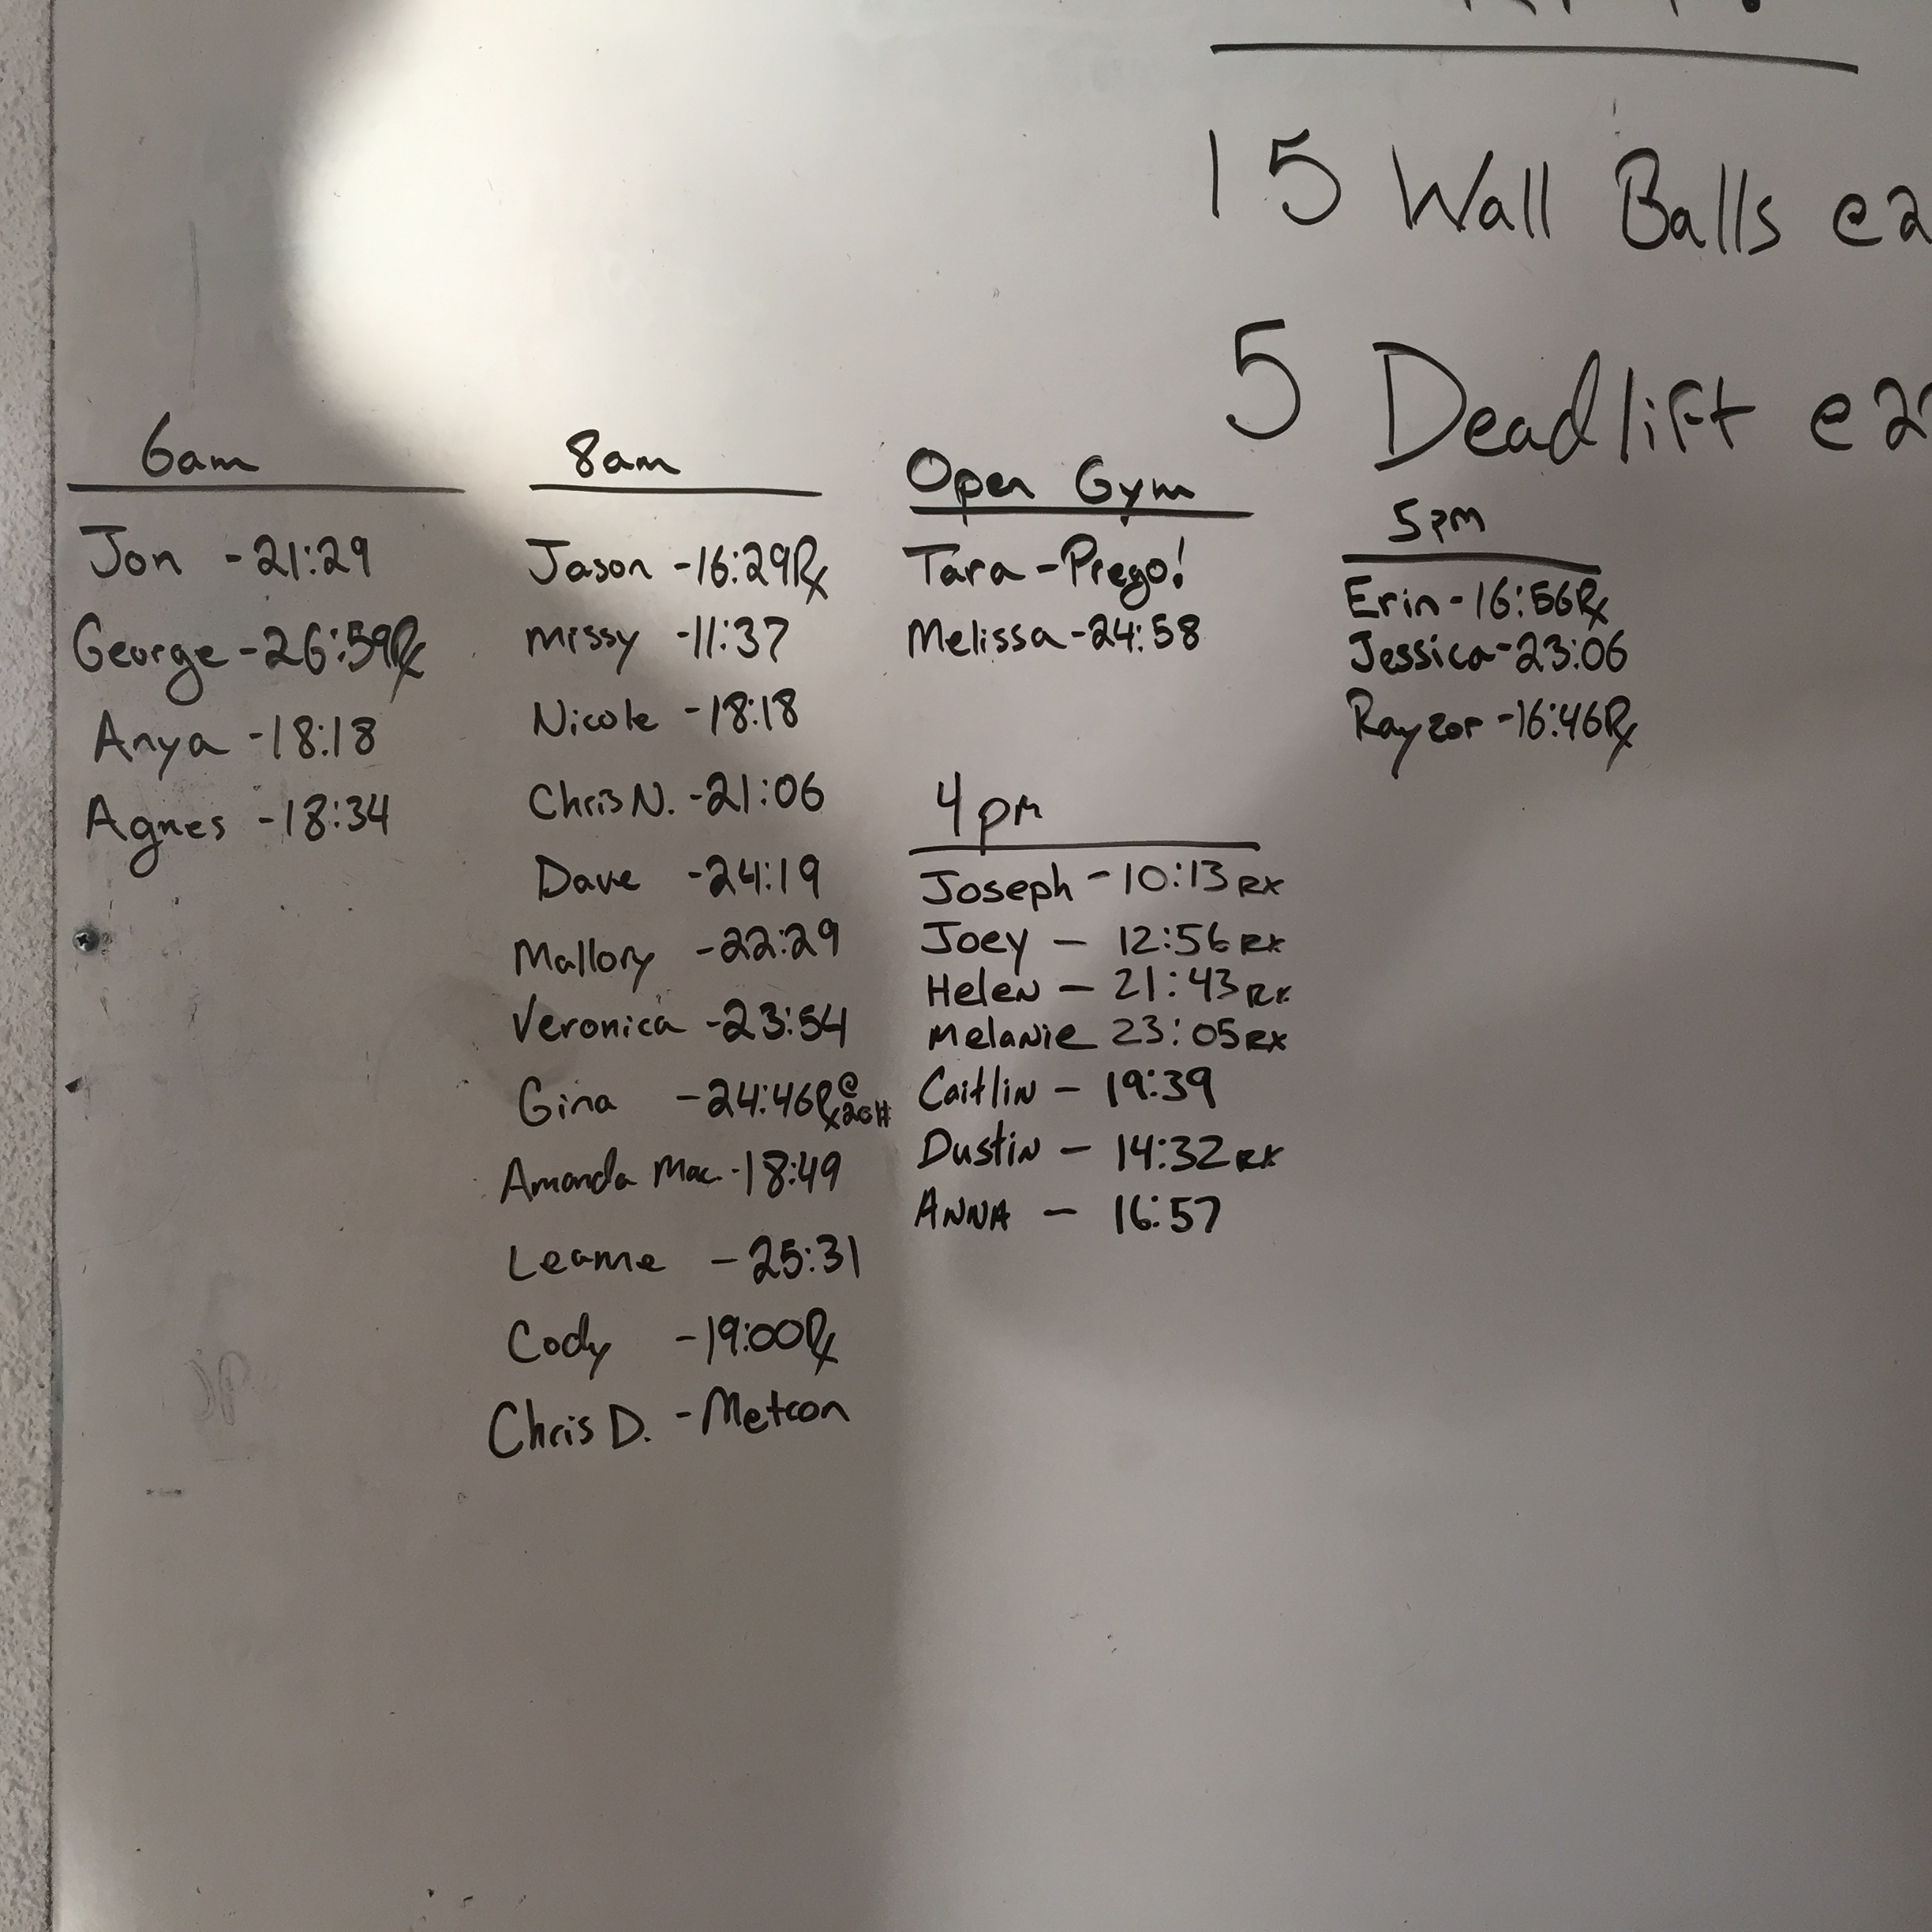 15 Wall Balls e2
5 Deadlift e2
6am
Jon - 21:29
George - 26:59 Rx
Anya - 18:18
Agnes - 18:34
8am
Jason - 16:29 Rx
Missy - 11:37
Nicole - 18:18
Chris N. - 21:06
Dave - 24:19
Mallory - 22:29
Veronica - 23:54
Gina - 24:46 Rx @ 20#
Amanda Mac - 18:49
Leanne - 25:31
Cody - 19:00 Rx
Chris D. - Metcon
Open Gym
Tara - Prego!
Melissa - 24:58
4pm
Joseph - 10:13 RX
Joey - 12:56 RX
Helen - 21:43 RX
Melanie 23:05 RX
Caitlin - 19:39
Dustin - 14:32 RX
ANNA - 16:57
5pm
Erin - 16:56 Rx
Jessica - 23:06
Rayzor - 16:46 Rx